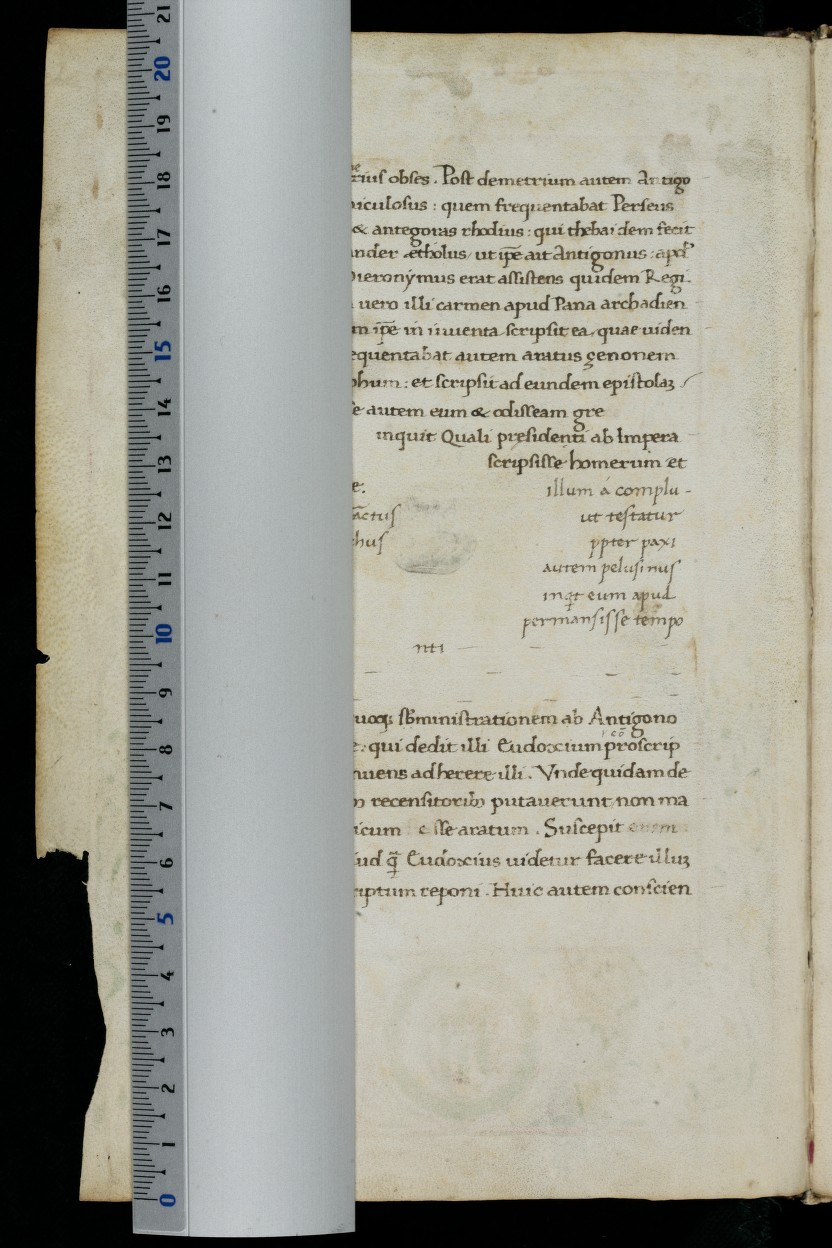 rius obses . Post demetrium autem Antigo
iculosus : quem frequentabat Perseus
& antegoras rhodius : qui thebaidem fecit
nder ætholus, ut ip̄e ait Antigonus : apd̓
ieronymus erat assistens quidem Regi.
uero illi carmen apud Pana archadien
m ip̄e in iuuenta scripsit ea, quae uiden
equentabat autem aratus zenonem
phum : et scripsit ad eundem epistolaʒ
e autem eum & odisseam gre
inquit Quali presidenti ab Impera
scripsisse homerum et
e. illum á complu-
actus ut testatur
hus ꝓpter paxi
autem pelusinus
inq̇t eum apud
permansisse tempo
nti
uoqꝫ sb̄ministrationem ab Antigono
e: qui dedit illi Eudoxium proscrip
nuens adherere illi . Vnde quidam de
recensitoribꝫ putauerunt non ma
icum esse aratum . Suscepit enim
ud q̄ Eudoxius uidetur facere illuʒ
iptum reponi . Huic autem conscien
0 1 2 3 4 5 6 7 8 9 10 11 12 13 14 15 16 17 18 19 20 21